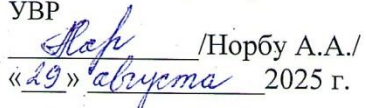 УВР
/Норбу А.А./
«29» августа 2025 г.